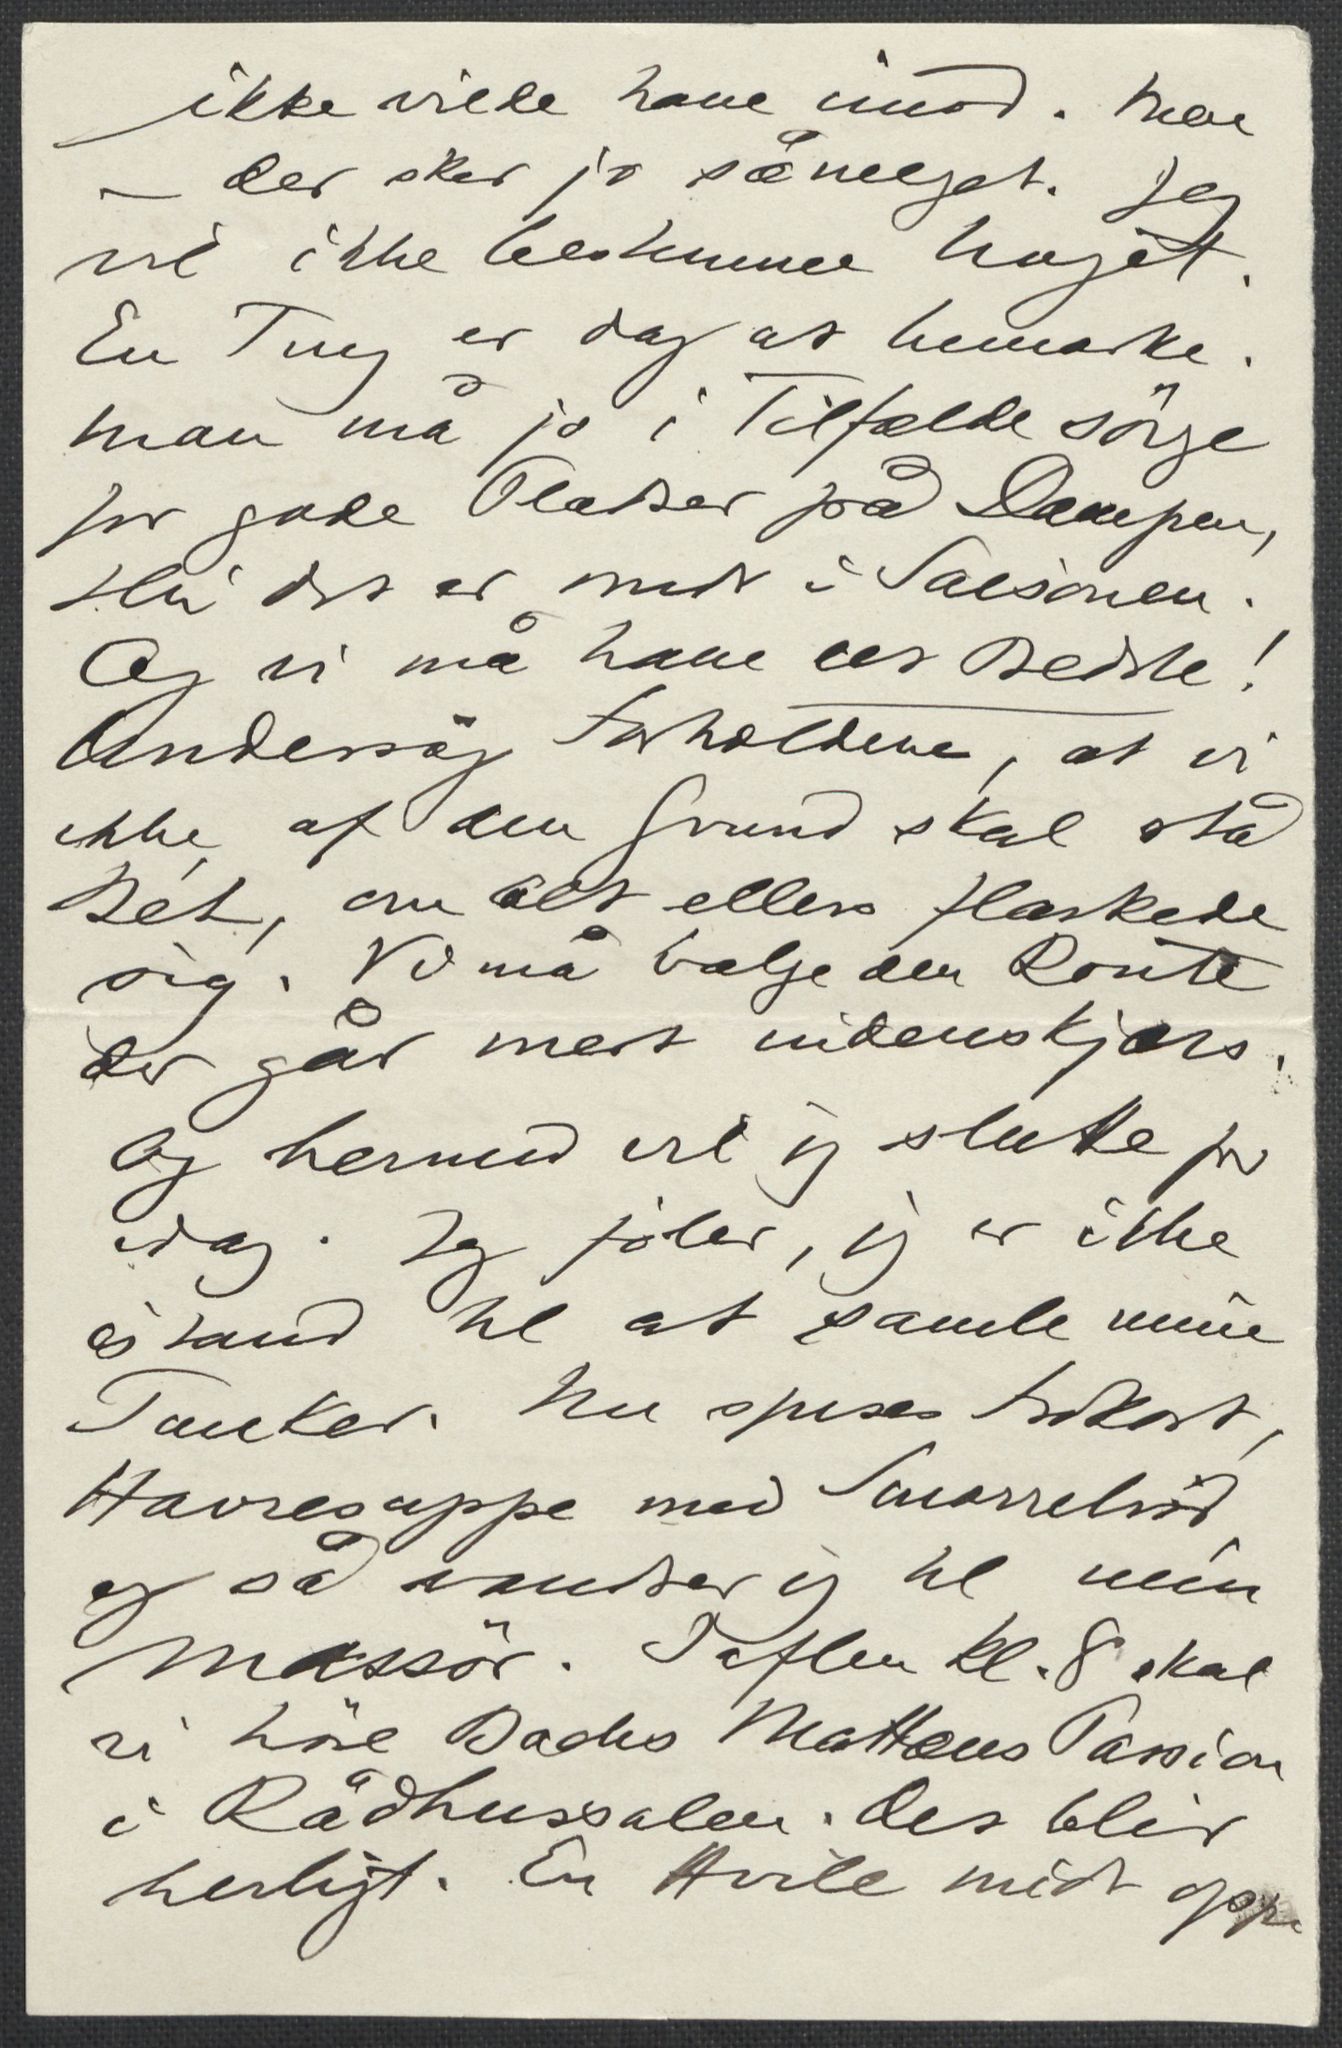 ikke vilde have imod. Men
– der sker jo såmeget. Jeg
vil ikke bestemme noget.
En Ting er dog at bemærke.
Man må jo i Tilfælde sörge
for gode Pladser på Dampen,
thi det er midt i Saisonen.
Og vi må have det Bedste!
Undersög Forholdene, at vi
ikke af den Grund skal stå
Bet, om alt ellers flaskede
sig. Vi må vælge den Route
der går mest indenskjærs.
Og hermed vil jeg slutte for
idag. Jeg föler, jeg er ikke
istand til at samle mine
Tanker. Nu spises Frokost,
Havresuppe med Smörrebröd
og så vandrer jeg til min
Massör. Iaften kl. 8 skal
vi höre Bachs Mattæus Passion
i Rådhussalen. Det blir
herligt. En Hvile midt opp